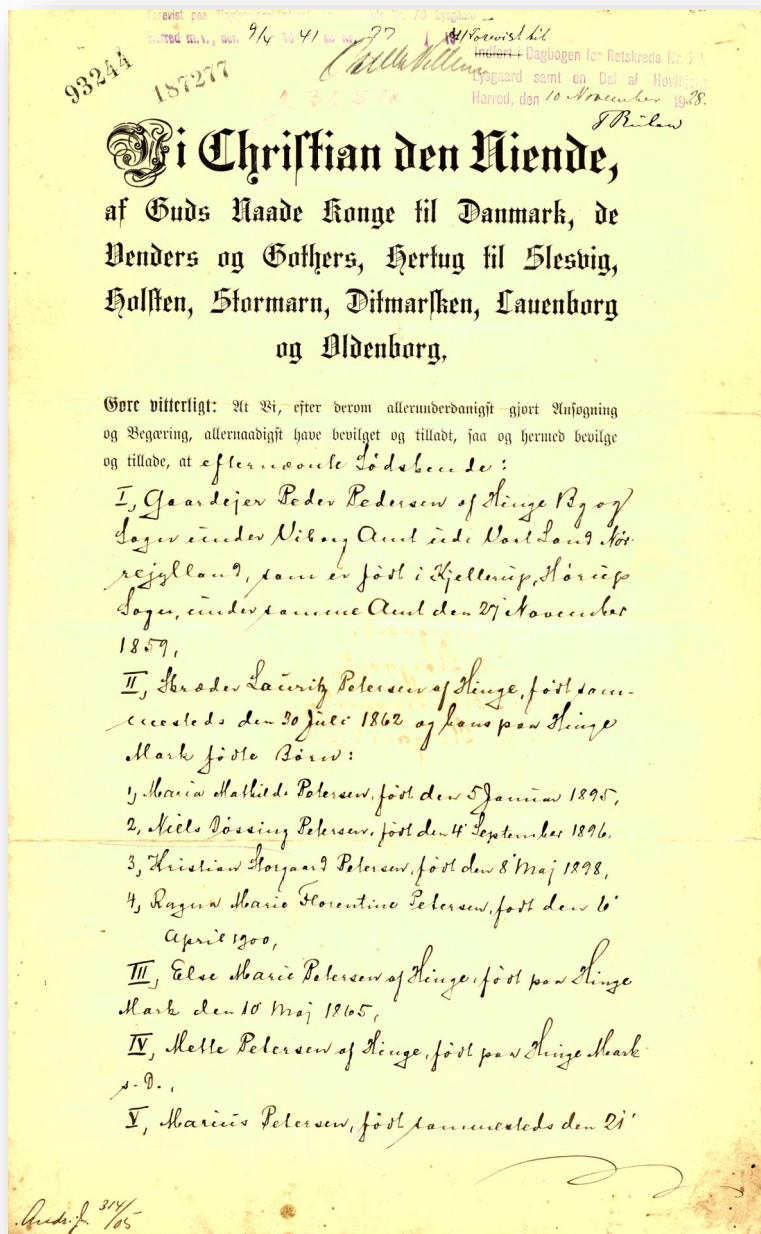 Forevist paa
Herred m.v., den 9/4 1941
93244
187277
Forevist til
Indført i Dagbogen for Retskreds Nr.
Lysgaard samt en Del af Hovlbjerg
Herred, den 10 November 1938.
Vi Christian den Niende,
af Guds Naade Konge til Danmark, de
Venders og Gothers, Hertug til Slesvig,
Holsten, Stormarn, Ditmarsken, Lauenborg
og Oldenborg,
Gøre vitterligt: At Vi, efter derom allerunderdanigst gjort Ansøgning
og Begæring, allernaadigst have bevilget og tilladt, saa og hermed bevilge
og tillade, at efternævnte Sødskende:
I, Gaardejer Peder Pedersen af Hinge By og
Sogn under Viborg Amt udi Vort Land Nør-
rejylland, som er født i Kjellerup, Hørup
Sogn, under samme Amt den 27 November
1859,
II, Skræder Lauritz Petersen af Hinge, født sam-
mesteds den 30 Juli 1862 og hans paa Hinge
Mark fødte Børn:
1, Maria Mathilde Petersen, født den 5 Januar 1895,
2, Niels Døssing Petersen, født den 4' September 1896,
3, Kristian Storgaard Petersen, født den 8' Maj 1898,
4, Ragna Marie Florentine Petersen, født den 6'
April 1900,
III, Else Marie Petersen af Hinge, født paa Hinge
Mark den 10' Maj 1865,
IV, Mette Petersen af Hinge, født paa Hinge Mark
s. D.,
V, Marius Petersen, født sammesteds den 21'
Andr. J. 314/05